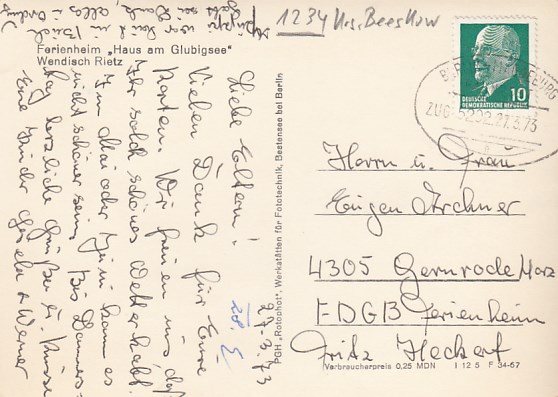 1234 Krs. Beeskow
Ferienheim „Haus am Glubigsee"
Wendisch Rietz
27.3.73
Liebe Eltern!
Vielen Dank für Eure
Karten. Wir freuen uns daß
Ihr solch schönes Wetter habt.
Im Mai oder Juni kann es
nicht schöner sein. Bis Donners-
tag herzliche Grüße u. Küsse
Eure Kinder Gisela + Werner
alles in Ordnung
PGH „Rotophot", Werkstätten für Fototechnik, Bestensee bei Berlin
DEUTSCHE
DEMOKRATISCHE REPUBLIK
10
ZUG 5202 27.3.73
Herrn u. Frau
Eugen Kirchner
4305 Gernrode/Harz
FDGB Ferienheim
Fritz Heckert
Verbraucherpreis 0,25 MDN I 12 5 F 34-67